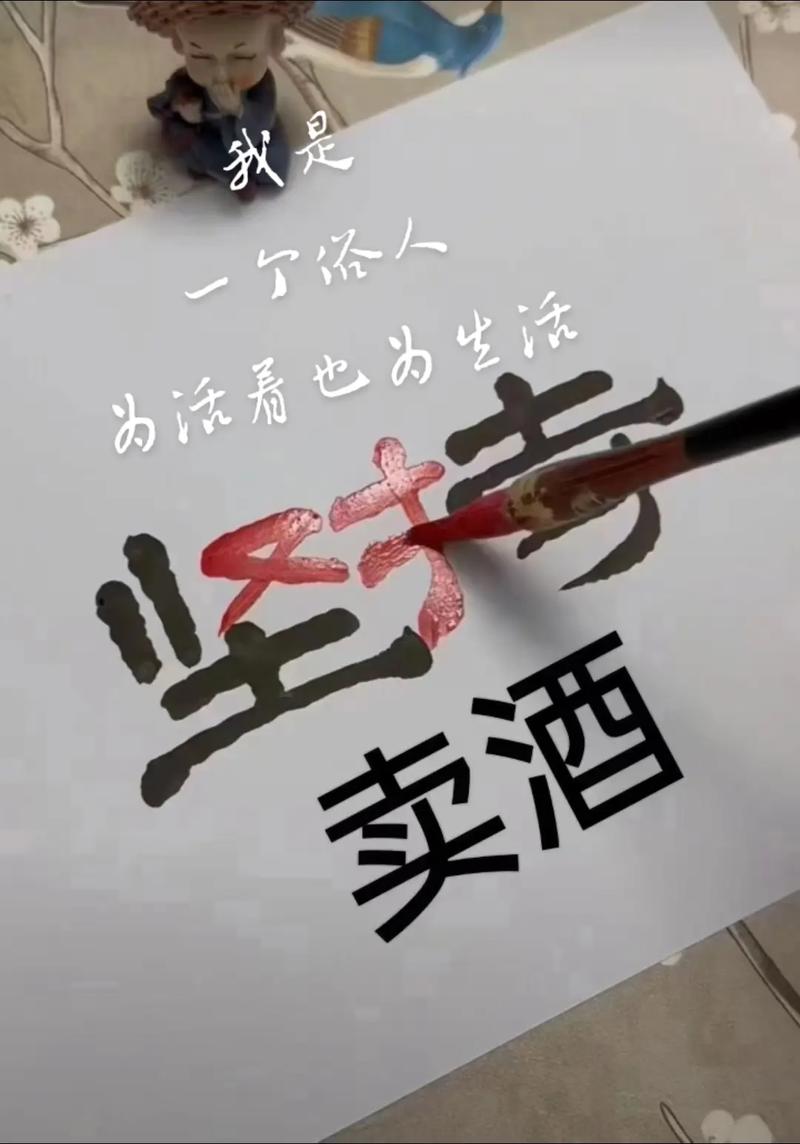 我是
一个俗人
为活着也为生活
坚持
卖酒